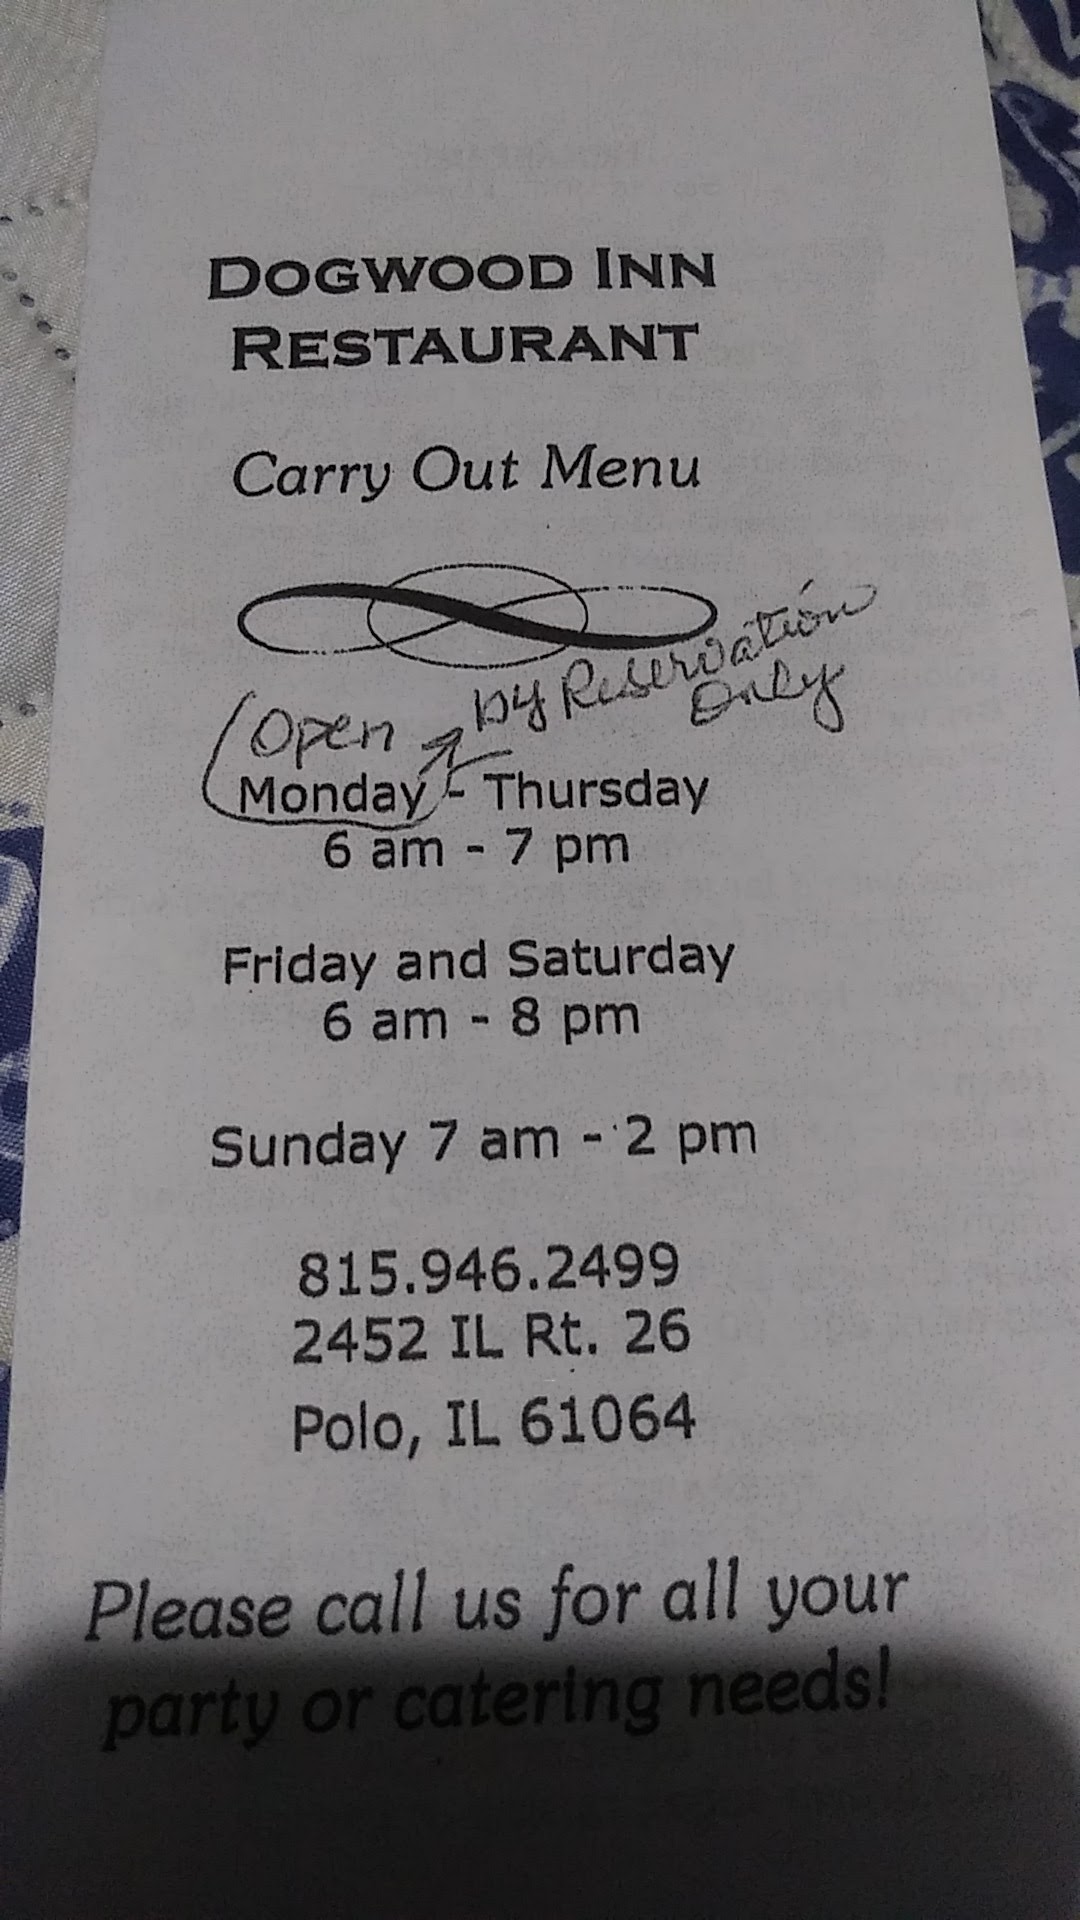 DOGWOOD INN
RESTAURANT
Carry Out Menu
Open by Reservation
Only
Monday - Thursday
6 am - 7 pm
Friday and Saturday
6 am - 8 pm
Sunday 7 am - 2 pm
815.946.2499
2452 IL Rt. 26
Polo, IL 61064
Please call us for all your
party or catering needs!